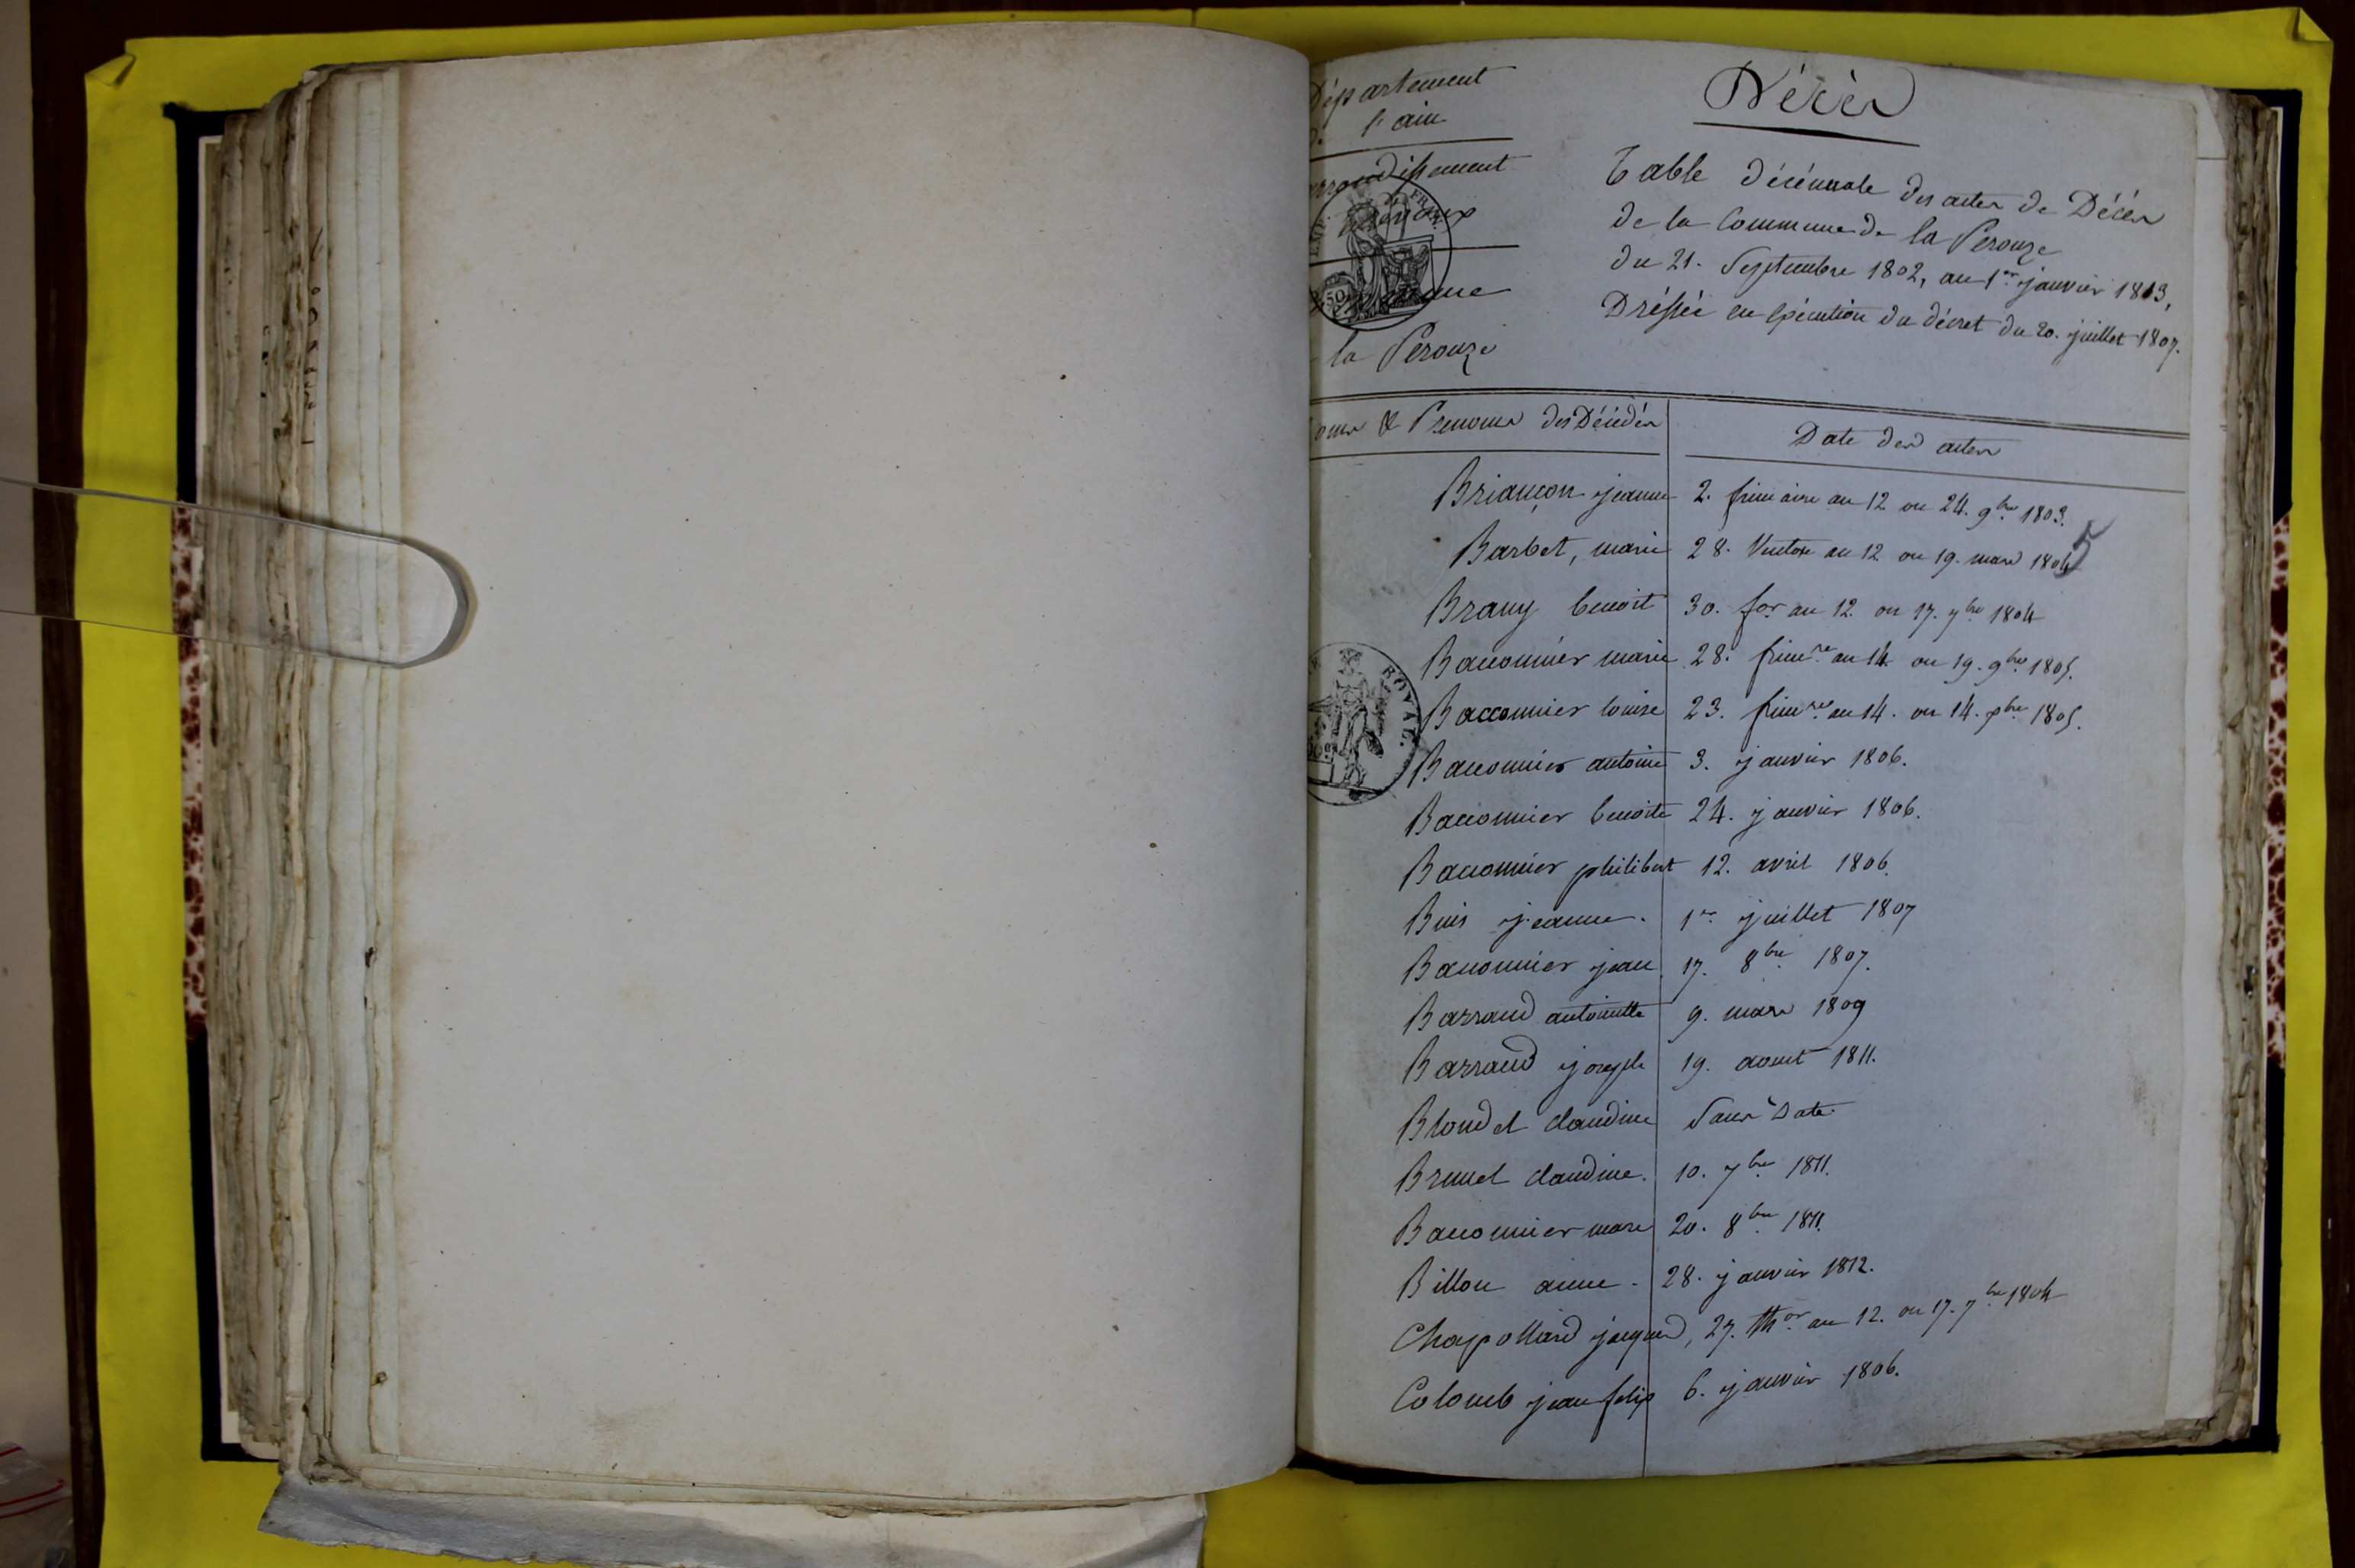 Département
l'ain
arrondissement
Trévoux
Commune
la Perouze
Décès
Table décennale des actes de Décès
de la Commune de la Perouze
du 21. Septembre 1802, au 1er janvier 1813,
Dréssée en exécution du décret du 20. juillet 1807.
oms & Prenoms des Décédés
Date des actes
Briançon jeanne 2. frimaire an 12 ou 24. 9bre 1803.
Barbet, marie 28. Ventose an 12 ou 19. mars 1804
5
Brany benoit 30. for an 12. ou 17. 7bre 1804
Bacconnier marie 28. frimre an 14 ou 19. 9bre 1805.
Bacconnier louise 23. frimre an 14. ou 14. xbre 1805.
Bacconnier antoine 3. janvier 1806.
Bacconnier benoite 24. janvier 1806.
Bacconnier philibert 12. avril 1806.
Buis jeanne. 1er juillet 1807
Bacconnier jean 17. 8bre 1807.
Barraud antoinette 9. mars 1809
Barraud joseph 19. aoust 1811.
Blondel claudine Sans Date
Brunet claudine. 10. 7bre 1811.
Bacconnier marie 20. 8bre 1811.
Billon anne. 28. janvier 1812.
Chapolland jacques, 27. thor an 12. ou 17. 7bre 1804
Colomb jean felix 6. janvier 1806.
50
ROYAL.